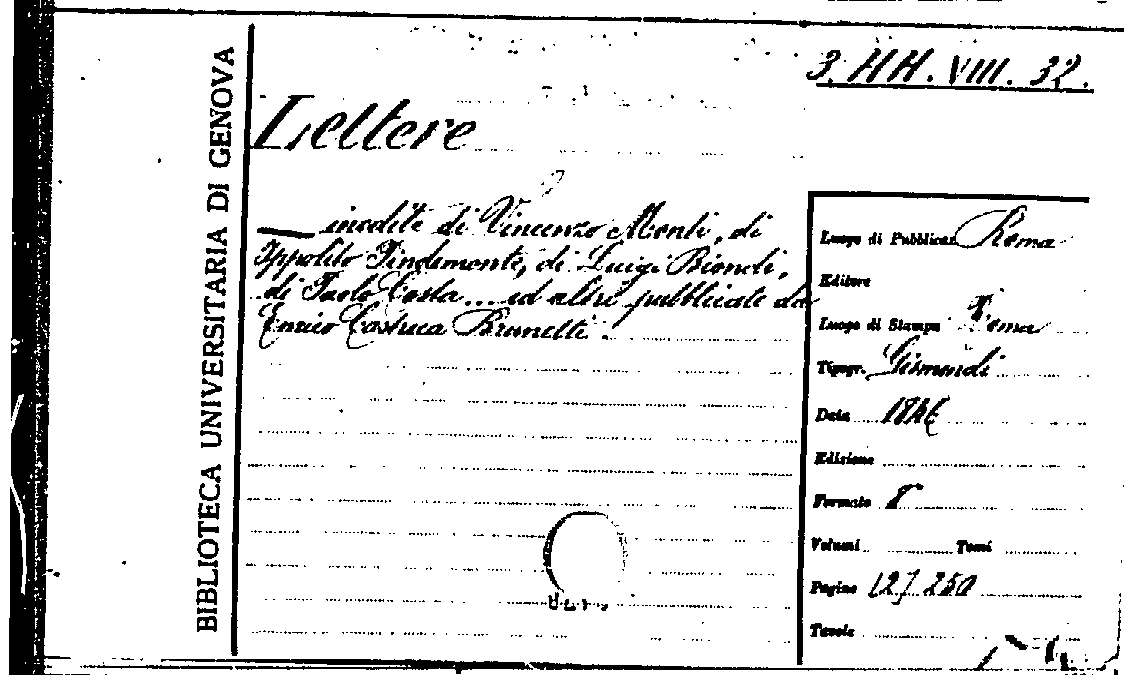 BIBLIOTECA UNIVERSITARIA DI GENOVA
3. HH. VIII. 32.
Lettere
—— inedite di Vincenzo Monti, di
Ippolito Pindemonte, di Luigi Biondi,
di Paolo Costa... ed altri pubblicate da
Enrico Castreca Brunetti.
Luogo di Pubblicaz. Roma
Editore
Luogo di Stampa Roma
Tipogr. Gismondi
Data 1846
Edizione
Formato 8°
Volumi Tomi
Pagine [2] 250
Tavole